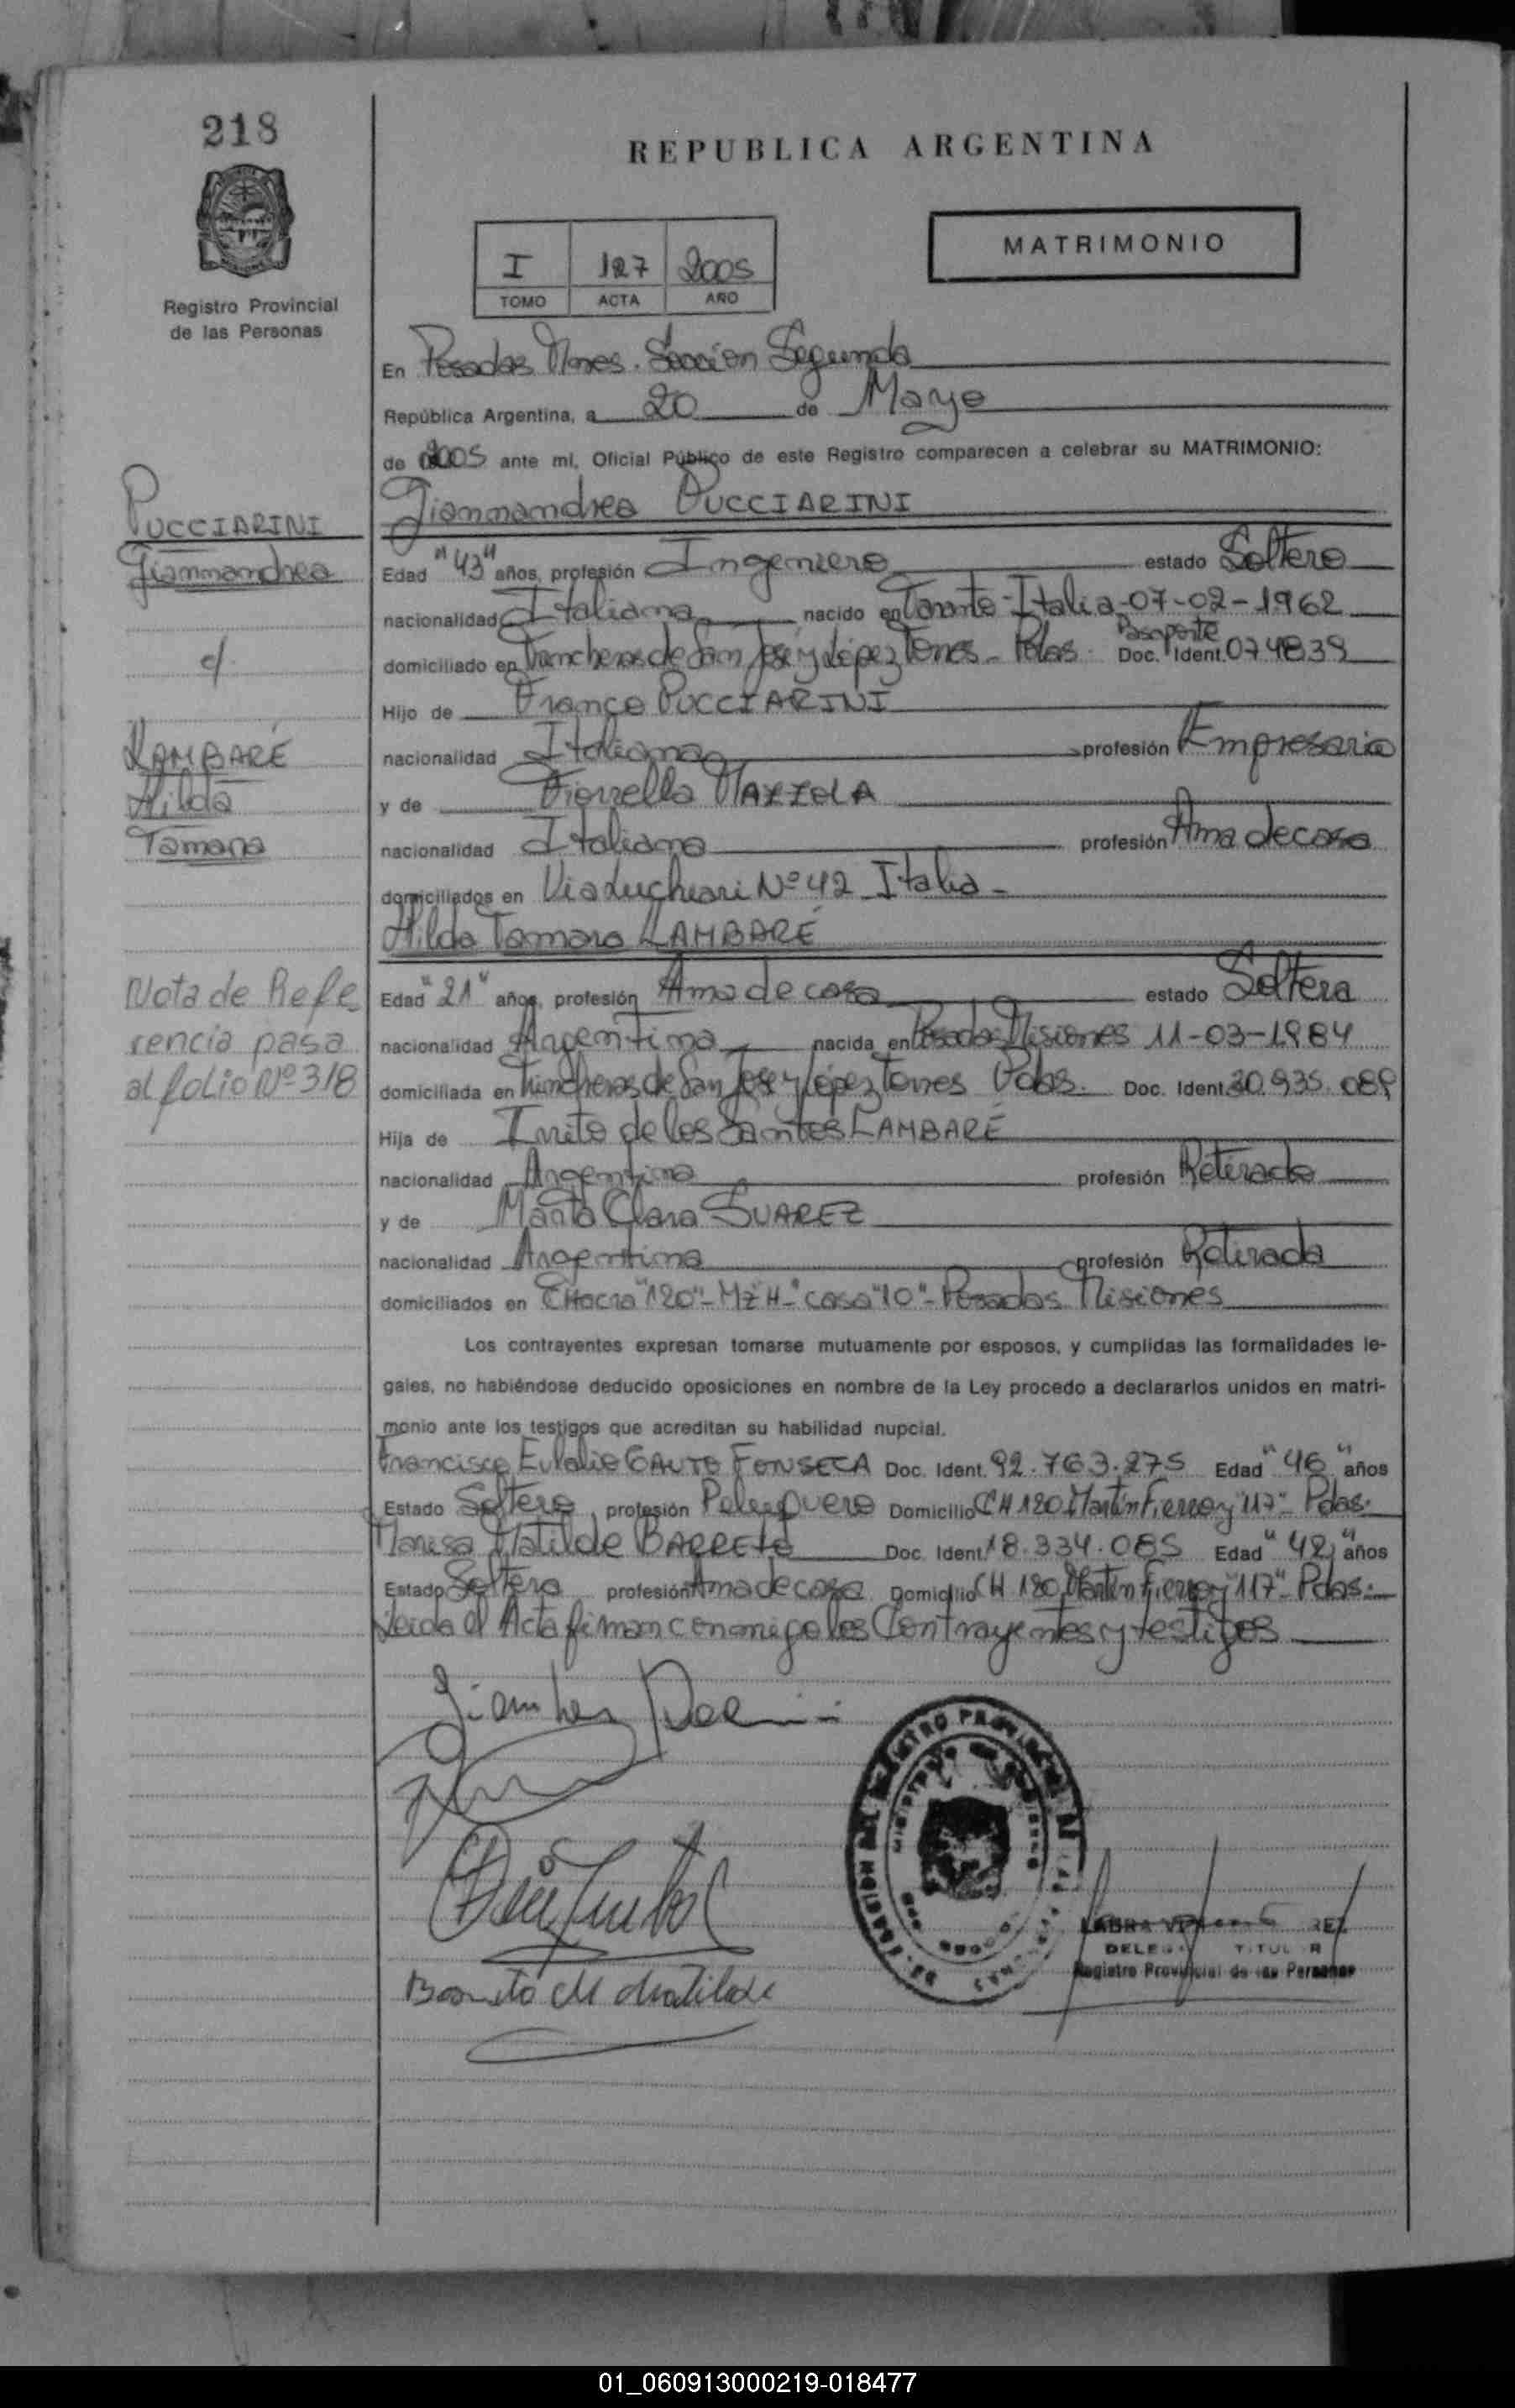 218
REPUBLICA ARGENTINA
MATRIMONIO
I 127 2005
TOMO ACTA AÑO
Registro Provincial
de las Personas
En Posadas Mnes. Sección Segunda
República Argentina, a 20 de Mayo
de 2005 ante mí, Oficial Público de este Registro comparecen a celebrar su MATRIMONIO:
PUCCIARINI
Gianmandrea
c/.
LAMBARÉ
Hilda
Tamara
Nota de Refe
rencia pasa
al folio Nº 318
Gianmandrea PUCCIARINI
Edad "43" años, profesión Ingeniero estado Soltero
nacionalidad Italiana nacido en Taranto-Italia-07-02-1962
domiciliado en Trincheras de San José y López Torres - Pdas. Pasaporte Doc. Ident. 074839
Hijo de Franco PUCCIARINI
nacionalidad Italiana profesión Empresario
y de Fiorella MAZZOLA
nacionalidad Italiana profesión Ama de casa
domiciliados en Via Nº 42 Italia-
Hilda Tamara LAMBARÉ
Edad "21" años, profesión Ama de casa estado Soltera
nacionalidad Argentina nacida en Posadas Misiones 11-03-1984
domiciliada en Trincheras de San José y López Torres Pdas. Doc. Ident. 30.935.089
Hija de de los Santos LAMBARÉ
nacionalidad Argentina profesión Retirado
y de Marta Clara SUAREZ
nacionalidad Argentina profesión Retirada
domiciliados en CHacra "120"-Mz "H-" casa "10"-Posadas Misiones
Los contrayentes expresan tomarse mutuamente por esposos, y cumplidas las formalidades le-
gales, no habiéndose deducido oposiciones en nombre de la Ley procedo a declararlos unidos en matri-
monio ante los testigos que acreditan su habilidad nupcial.
Francisco Eulalio GAUTO FONSECA Doc. Ident. 92.763.275 Edad "46" años
Estado Soltero, profesión Peluquero Domicilio CH 120 Martin Fierro y "117" Pdas.
Marisa Matilde BARRETO Doc. Ident. 18.334.085 Edad "42" años
Estado Soltera profesión Ama de casa Domicilio CH 120 Martin Fierro y "117" Pdas.
Leida el Acta firman conmigo los Contrayentes y testigos
Matilde
Registro Provincial de las Personas
01_060913000219-018477